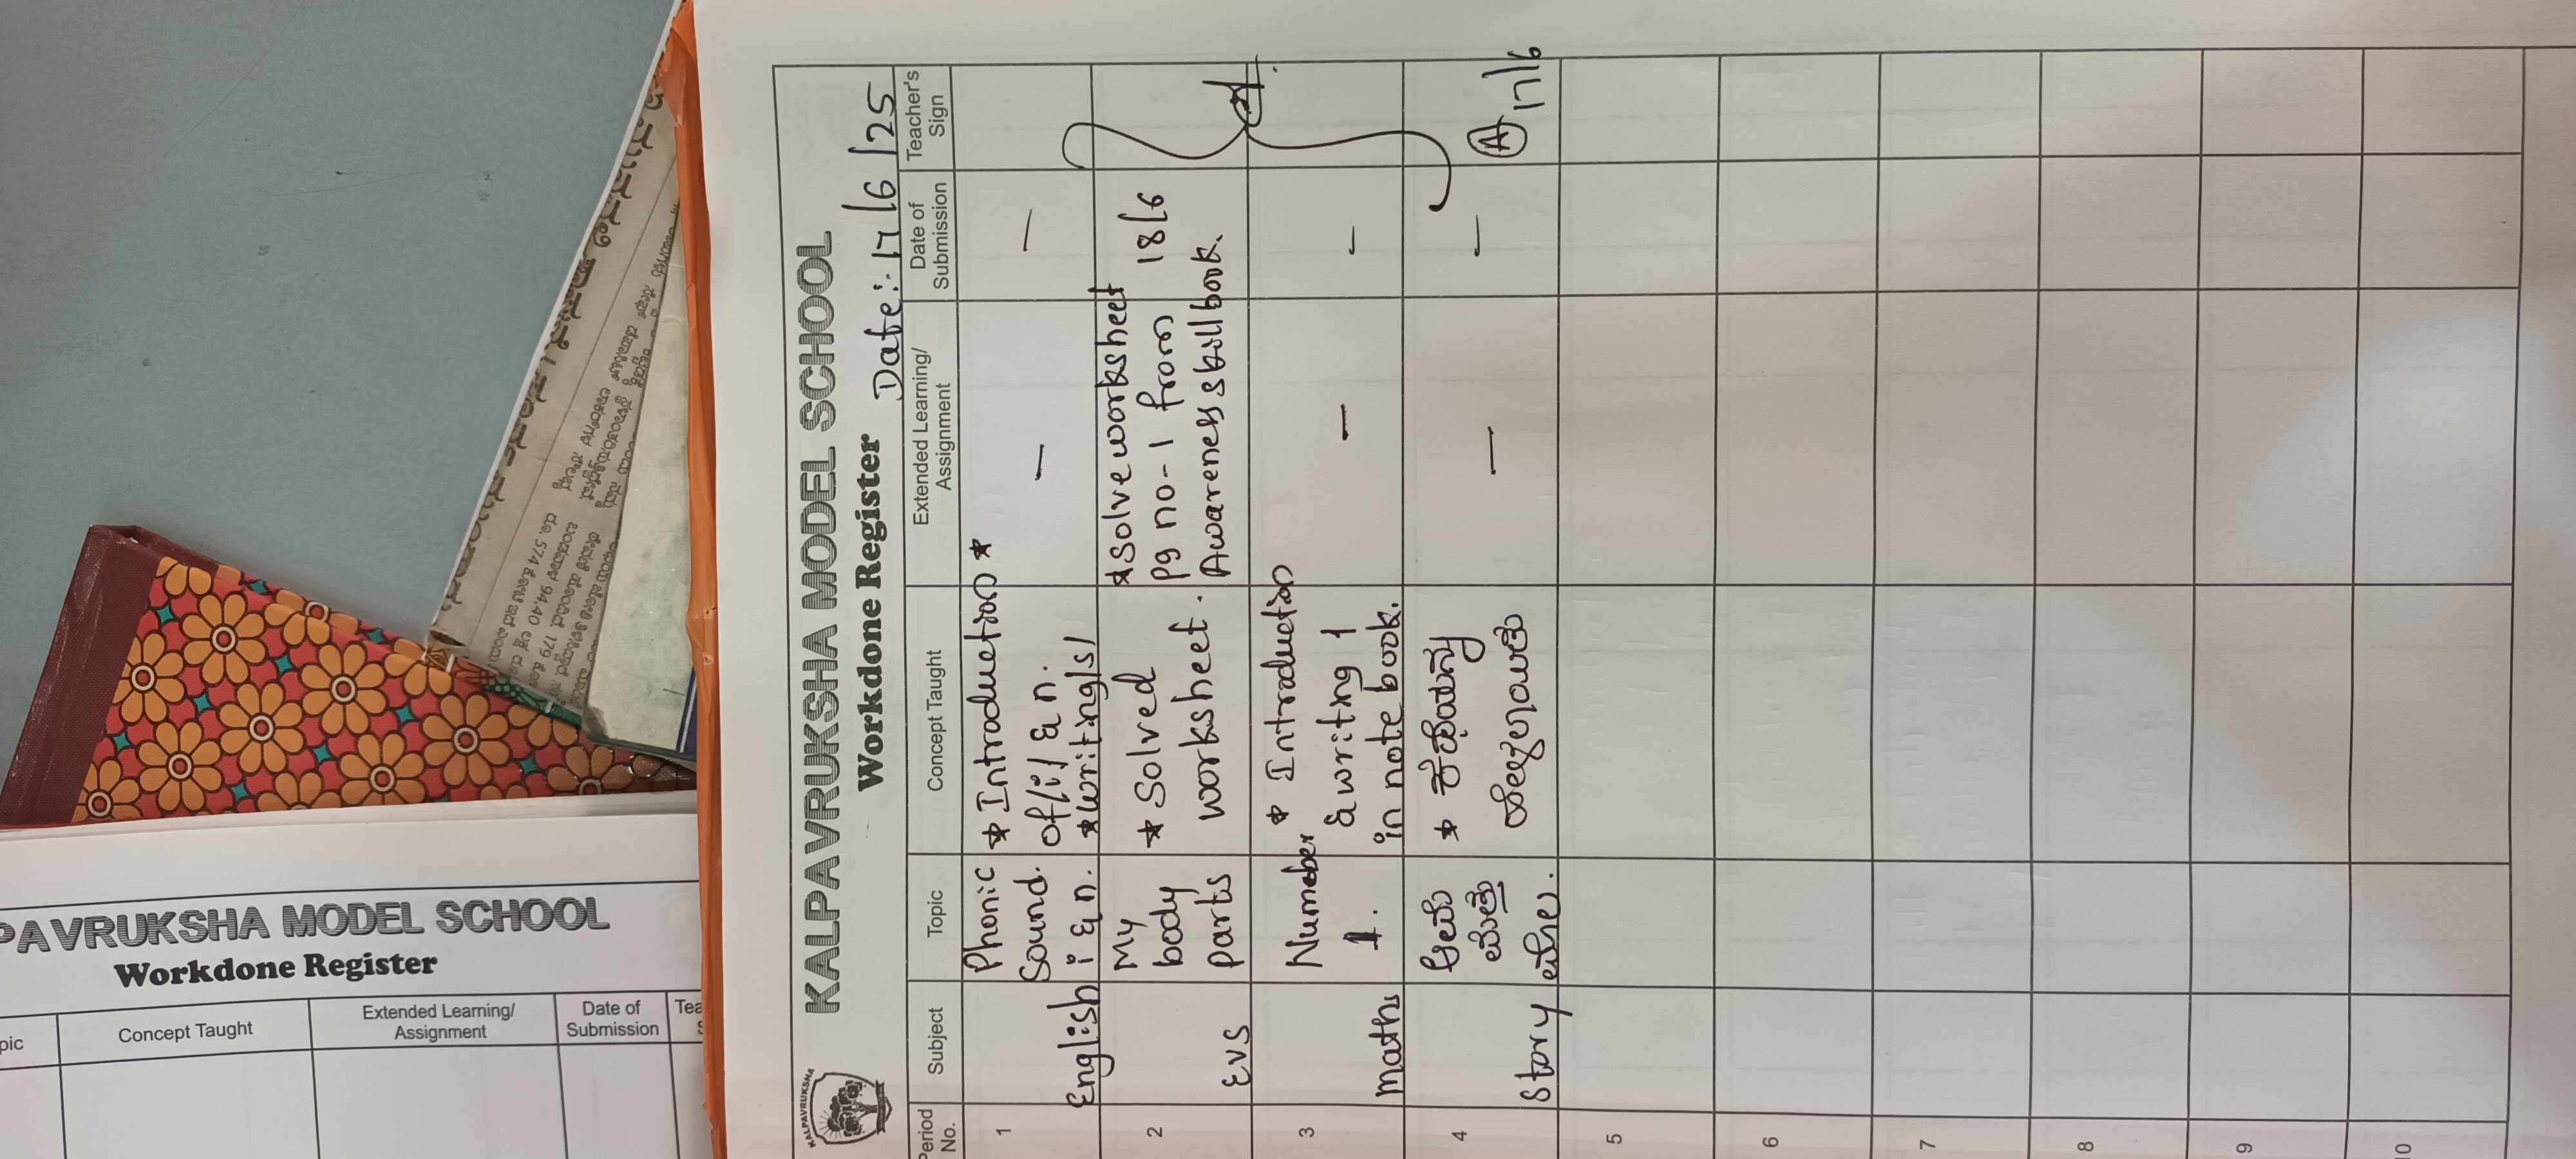 KALPAVRUKSHA
KALPAVRUKSHA MODEL SCHOOL
Workdone Register
Date: 17/6/25
Period No.
Subject
Topic
Concept Taught
Extended Learning/
Assignment
Date of
Submission
Teacher's
Sign
1
English
Phonic
Sound.
i & n.
* Introduction *
of /i/ & n.
* Writing /s/
—
—
2
EVS
My
body
parts
* Solved
worksheet.
* Solve worksheet
pg no-1 from
Awareness skill book.
18/6
3
maths
Number
1.
* Introduction
& writing 1
in note book.
—
—
4
Story
ಆಮೆ
ಮತ್ತು
ಮೊಲ.
* ಕಥೆಯನ್ನು
ಹೇಳಲಾಯಿತು
—
—
A 17/6
5
6
7
8
9
10
PAVRUKSHA MODEL SCHOOL
Workdone Register
pic
Concept Taught
Extended Learning/
Assignment
Date of
Submission
Tea
S